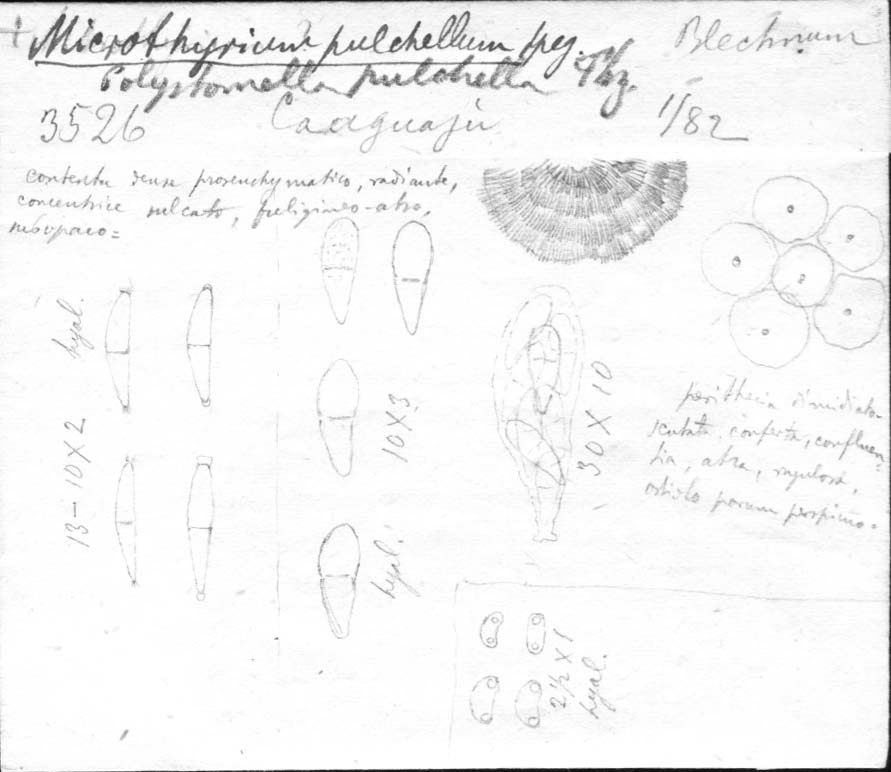 + Microthyrium pulchellum Speg.
Blechnum
Polystomella pulchella
3526
Caaguazú
1/82
contextu dense prosenchymatico, radiante,
concentrice sulcato, fuligineo-atro,
subopaco=
hyal.
13-10X2
10X3
hyal.
30X10
perithecia dimidiato-
scutata, conferta, confluen=
tia, atra, rugulosa,
ostiolo parum perspicuo=
2½X1
hyal.